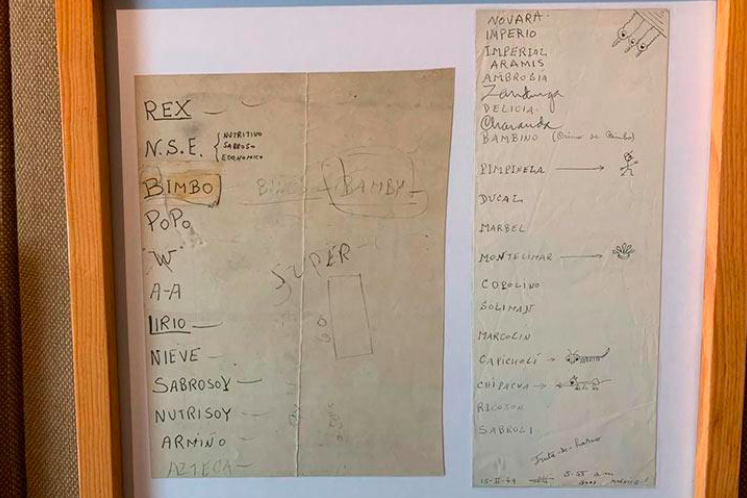 REX
N.S.E. { NUTRITIVO
SABROSO
ECONOMICO
BIMBO BAMBY
POPO
W
A-A
SUPER
LIRIO
NIEVE
SABROSOY
NUTRISOY
ARMIÑO
AZTECA
NOVARA
IMPERIO
IMPERIAL
ARAMIS
AMBROSIA
Zandunga
DELICIA
Charanda
BAMBINO (Primo de Bimbo)
PIMPINELA
DUCAL
MARBEL
MONTELIMAR
COROLINO
SOLIMAN
MARCOLIN
CAPICHOLI
CHIPACHA
RICOSON
SABROLI